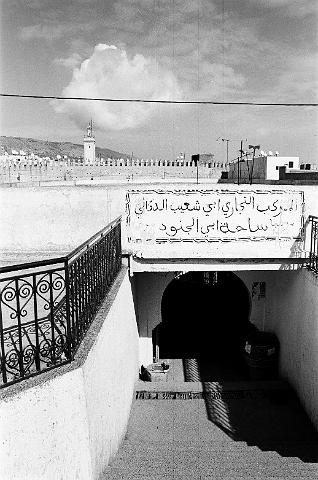 المركب التجاري ابي شعيب الدكالي
ساحة ابي الجنود